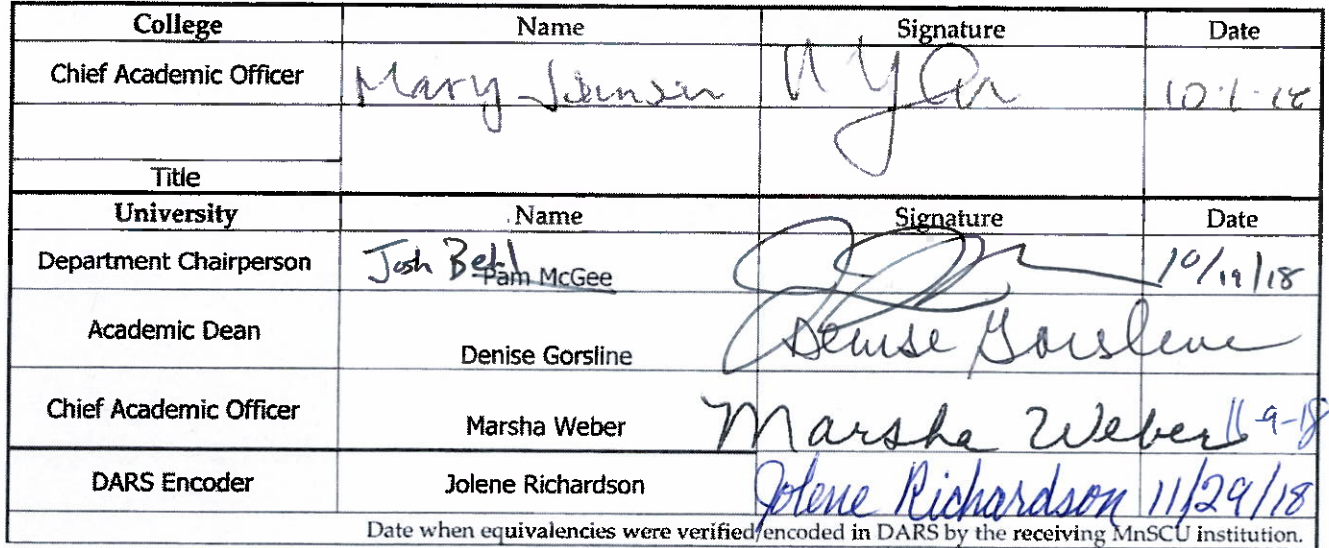 College Name Signature Date
Chief Academic Officer Mary Jensen 10-1-18
Title
University Name Signature Date
Department Chairperson Josh Behl Pam McGee 10/19/18
Academic Dean Denise Gorsline Denise Gorsline
Chief Academic Officer Marsha Weber Marsha Weber 11-9-18
DARS Encoder Jolene Richardson Jolene Richardson 11/29/18
Date when equivalencies were verified/encoded in DARS by the receiving MnSCU institution.